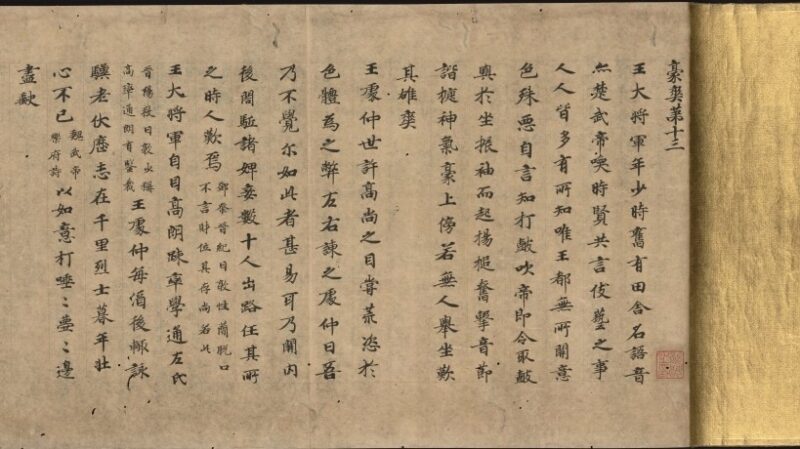 豪爽第十三
王大將軍年少時舊有田舍名語音
亦楚武帝喚時賢共言伎藝之事
人人皆多有所知唯王都無所關意
色殊惡自言知打鼓吹帝即令取鼓
與於坐振袖而起揚槌奮擊音節
諧捷神氣豪上傍若無人舉坐歎
其雄爽
王處仲世許高尚之目嘗荒恣於
色體為之弊左右諫之處仲曰吾
乃不覺尔如此者甚易耳乃開內
後閤駈諸婢妾數十人出路任其所
之時人歎焉
鄧粲晉紀曰敦性蕳脫口
不言財位其存尚若此
王大將軍自目高朗疎率學通左氏
晉陽秋曰敦少稱
高率通朗有鑒裁
王處仲每酒後輙詠
驥老伏櫪志在千里烈士暮年壯
心不已
魏武帝
樂府詩
以如意打唾〻壺〻邊
盡缺